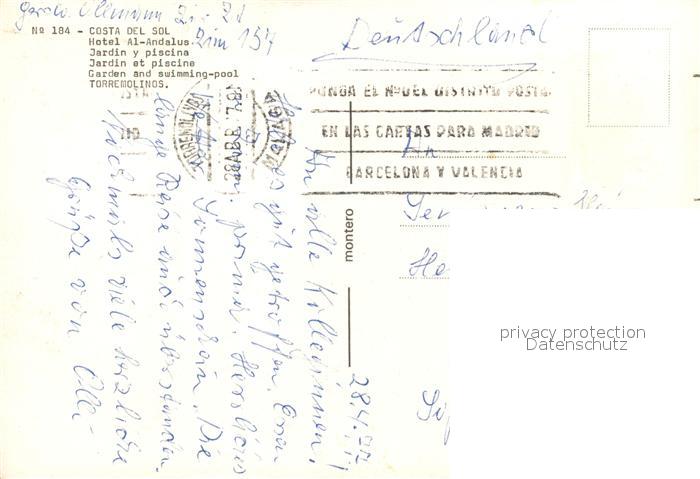 Zim 154
Nº 184 - COSTA DEL SOL
Hotel Al-Andalus.
Jardin y piscina
Jardin et piscine
Garden and suimming-pool
TORREMOLINOS.
Deutschland
PONGA EL Nº DEL DISTRITO POSTAL
EN LAS CARTAS PARA MADRID
BARCELONA Y VALENCIA
TORREMOLINOS
28 ABR 77
MALAGA
montero
28.4.77
An alle Kolleginnen,
es gut getroffen. Essen
prima. Herrliches
Sonnenschein. Die
lange Reise auch überstanden.
Nochmals viele herzliche
Grüße von Olli-
An
privacy protection
Datenschutz